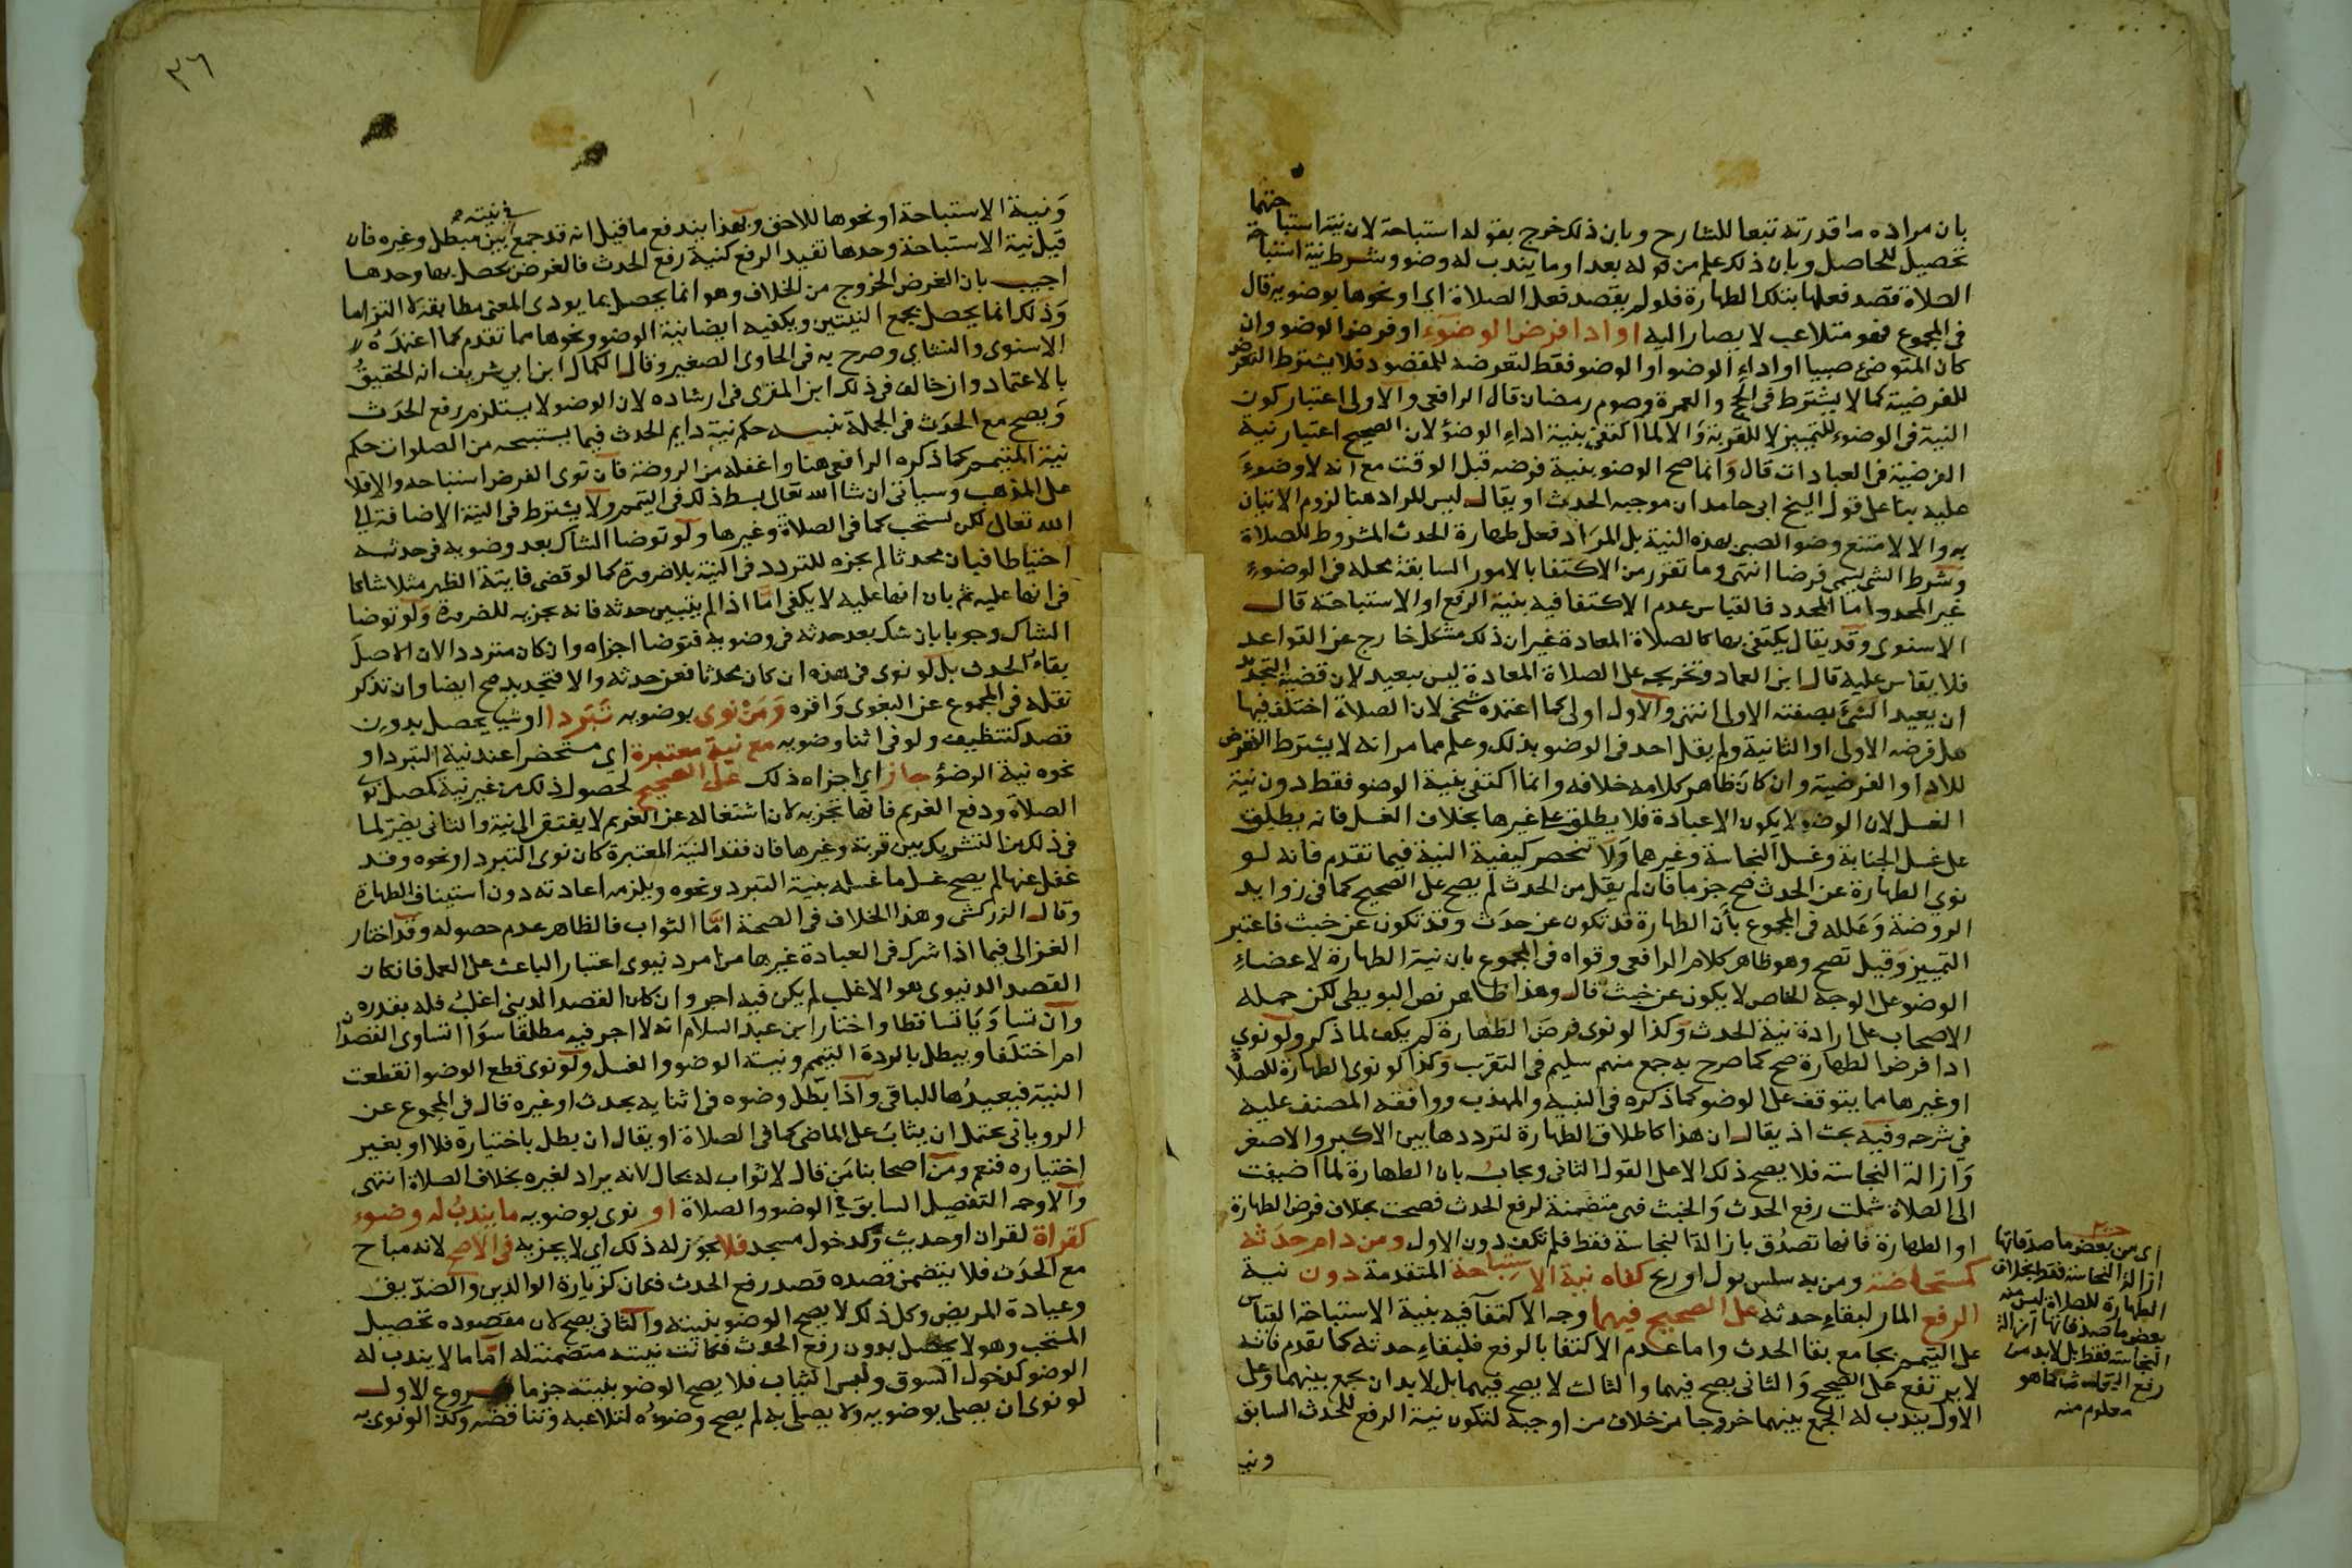 بان مراده ما قدرته تبعا للشارح وبان ذلك خرج بقوله استباحة لان نية استباحتها
تحصيل للحاصل وبان ذلك علم من قوله بعد او ما يندب له وضو وشرط نية استباحة
الصلاة قصد فعلها بتلك الطهارة فلو لم يقصد فعل الصلاة اي او نحوها بوضويه قال
في المجموع فهو متلاعب لا يصار اليه او ادا فرض الوضوء او فرض الوضو وان
كان المتوضي صبيا او اداء الوضو او الوضو فقط لتعرضه للمقصود فلا يشترط التعرض
للفرضية كما لا يشترط في الحج والعمرة وصوم رمضان قال الرافعي والاولى اعتبار كون
النية في الوضوء للتمييز لا للقربة والا لما اكتفى بنية اداء الوضؤ لان الصحيح اعتبار نية
الفرضية في العبادات قال وانما صح الوضو بنية فرضه قبل الوقت مع انه لا وضوء
عليه بنا على قول الشيخ ابي حامد ان موجبه الحدث او يقال ليس المراد هنا لزوم الاتيان
به والا لامتنع وضو الصبي بهذه النية بل المراد فعل طهارة الحدث المشروط للصلاة
وشرط الشي يسمى فرضا انتهى وما تقرر من الاكتفا بالامور السابقة محله في الوضوء
غير المجدد اما المجدد فالقياس عدم الاكتفا فيه بنية الرفع او الاستباحة قال
الاسنوي وقد يقال يكتفى بها كالصلاة المعادة غير ان ذلك مشكل خارج عن القواعد
فلا يقاس عليه قال ابن العماد وتخريجه على الصلاة المعادة ليس ببعيد لان قضية التجديد
ان يعيد الشئ بصفته الاولى انتهى والاول اولى كما اعتمده شيخي لان الصلاة اختلف فيها
هل فرضه الاولى او الثانية ولم يقل احد في الوضو بذلك وعلم مما مر انه لا يشترط التعرض
للادا والفرضية وان كان ظاهر كلامه خلافه وانما اكتفي بنية الوضو فقط دون نية
الغسل لان الوضو لا يكون الا عبادة فلا يطلق على غيرها بخلاف الغسل فانه يطلق
على غسل الجنابة وغسل النجاسة وغيرهما ولا تنحصر كيفية النية فيما تقدم فانه لو
نوي الطهارة عن الحدث صح جزما فان لم يقل من الحدث لم يصح على الصحيح كما في زوايد
الروضة وعلله في المجموع بأن الطهارة قد تكون عن حدث وقد تكون عن خبث فاعتبر
التمييز وقيل تصح وهو ظاهر كلام الرافعي وقواه في المجموع بان نية الطهارة لاعضاء
الوضو على الوجه الخاص لا يكون عن خبث قال وهذا ظاهر نص البويطي لكن حمله
الاصحاب على ارادة نية الحدث وكذا لو نوى فرض الطهارة لم يكف لما ذكر ولو نوي
ادا فرض الطهارة صح كما صرح به جمع منهم سليم في التقرب وكذا لو نوى الطهارة للصلاة
او غيرها مما يتوقف على الوضو كما ذكره في التنبيه والمهذب ووافقه المصنف عليه
في شرحه وفيه بحث اذ يقال ان هذا كاطلاق الطهارة لترددها بين الاكبر والاصغر
وازالة النجاسة فلا يصح ذلك الا على القول الثاني ويجاب بان الطهارة لما اضيفت
الى الصلاة شملت رفع الحدث والخبث فهي متضمنة لرفع الحدث فصحت بخلاف فرض الطهارة
او الطهارة فانها تصدق بازالة النجاسة فقط فلم تكف دون الاول ومن دام حدثه
كمستحاضة ومن به سلس بول او ريح كفاه نية الاستباحة المتقدمة دون نية
الرفع المار لبقاء حدثه على الصحيح فيهما وجه الاكتفا فيه بنية الاستباحة القياس
على التيمم بجامع بقا الحدث واما عدم الاكتفا بالرفع فلبقاء حدثه كما تقدم فانه
لا يرتفع على الصحيح والثاني يصح فيهما والثالث لا يصح فيهما بل لا بد ان يجمع بينهما وعلى
الاول يندب له الجمع بينهما خروجا من خلاف من اوجبه لتكون نية الرفع للحدث السابق
ونية
اي من بعض ما صدقاتها
ازالة النجاسة فقط بخلاف
الطهارة للصلاة ليس منه
بعض ما صدقاتها ازالة
النجاسة فقط بل لا بد من
رفع الحدث كما هو
معلوم منه
٣٦
ونية الاستباحة او نحوها للاحق وبهذا يندفع ما قيل انه قد جمع في نيته بين مبطل وغيره فان
قيل نية الاستباحة وحدها تفيد الرفع كنية رفع الحدث فالغرض يحصل بها وحدها
اجيب بان الغرض الخروج من الخلاف وهو انما يحصل بما يودي المعنى مطابقة لا التزاما
وذلك انما يحصل بجمع النيتين ويكفيه ايضا نية الوضو ونحوها مما تقدم كما اعتمده
الاسنوي والنشاي وصرح به في الحاوي الصغير وقال الكمال ابن ابي شريف انه الحقيق
بالاعتماد وان خالف في ذلك ابن المقري في ارشاده لان الوضو لا يستلزم رفع الحدث
ويصح مع الحدث في الجملة تنبيه حكم نية دايم الحدث فيما يستبيحه من الصلوات حكم
نية المتيمم كما ذكره الرافعي هنا واغفله من الروضة فان نوى الفرض استباحه والا فلا
على المذهب وسياتي ان شا الله تعالى بسط ذلك في التيمم ولا يشترط في النية الاضافة الى
الله تعالى لكن يستحب كما في الصلاة وغيرها ولو توضا الشاك بعد وضوءه في حدثه
احتياطا فبان محدثا لم يجزه للتردد في النية بلا ضرورة كما لو قضى فايتة الظهر مثلا شاكا
في انها عليه ثم بان انها عليه لا يكفي اما اذا لم يتبين حدثه فانه يجزيه للضرورة ولو توضا
الشاك وجوبا بان شك بعد حدثه في وضوءه فتوضا اجزاه وان كان مترددا لان الاصل
بقاء الحدث بل لو نوى في هذه ان كان محدثا فعن حدثه والا فتجديد صح ايضا وان تذكر
نقله في المجموع عن البغوي واقره ومن نوى بوضويه تبردا او شيا يحصل بدون
قصد كتنظيف ولو في اثنا وضويه مع نية معتبرة اي مستحضرا عند نية التبرد او
نحوه نية الوضؤ جاز اي اجزاه ذلك على الصحيح لحصول ذلك من غير نية كمصل نوى
الصلاة ودفع الغريم فانها تجزيه لان اشتغاله عن الغريم لا يفتقر الى نية والثاني يضر لما
في ذلك من التشريك بين قربة وغيرها فان فقد النية المعتبرة كان نوى التبرد او نحوه وقد
غفل عنها لم يصح غسل ما غسله بنية التبرد ونحوه ويلزمه اعادته دون استيناف الطهارة
وقال الزركشي وهذا الخلاف في الصحة اما الثواب فالظاهر عدم حصوله وقد اختار
الغزالي فيما اذا شرك في العبادة غيرها من امر دنيوي اعتبار الباعث على العمل فان كان
القصد الدنيوي هو الاغلب لم يكن فيه اجر وان كان القصد الديني اغلب فله بقدره
وان تساويا تساقطا واختار ابن عبد السلام انه لا اجر فيه مطلقا سوا اتساوى القصدان
ام اختلفا ويبطل بالردة التيمم ونية الوضو والغسل ولو نوى قطع الوضو انقطعت
النية فيعيدها للباقي واذا بطل وضوه في اثنايه بحدث او غيره قال في المجموع عن
الروياني يحتمل ان يثاب على الماضي كما في الصلاة او يقال ان بطل باختياره فلا او بغير
اختياره فنعم ومن اصحابنا من قال لا ثواب له بحال لانه يراد لغيره بخلاف الصلاة انتهى
والاوجه التفصيل السابق في الوضو والصلاة او نوى بوضويه ما يندب له وضوء
كقراة لقران او حديث وكدخول مسجد فلا يجوز له ذلك اي لا يجزيه في الاصح لانه مباح
مع الحدث فلا يتضمن قصده قصد رفع الحدث فكان كزيارة الوالدين والصديق
وعيادة المريض وكل ذلك لا يصح الوضو بنيته والثاني يصح لان مقصوده تحصيل
المستحب وهو لا يحصل بدون رفع الحدث فكانت نيته متضمنة له اما ما لا يندب له
الوضو كدخول السوق ولبس الثياب فلا يصح الوضو بنيته جزما فروع الاول
لو نوى ان يصلي بوضويه ولا يصلي به لم يصح وضوءه لتلاعبه وتناقضه وكذا لو نوى به